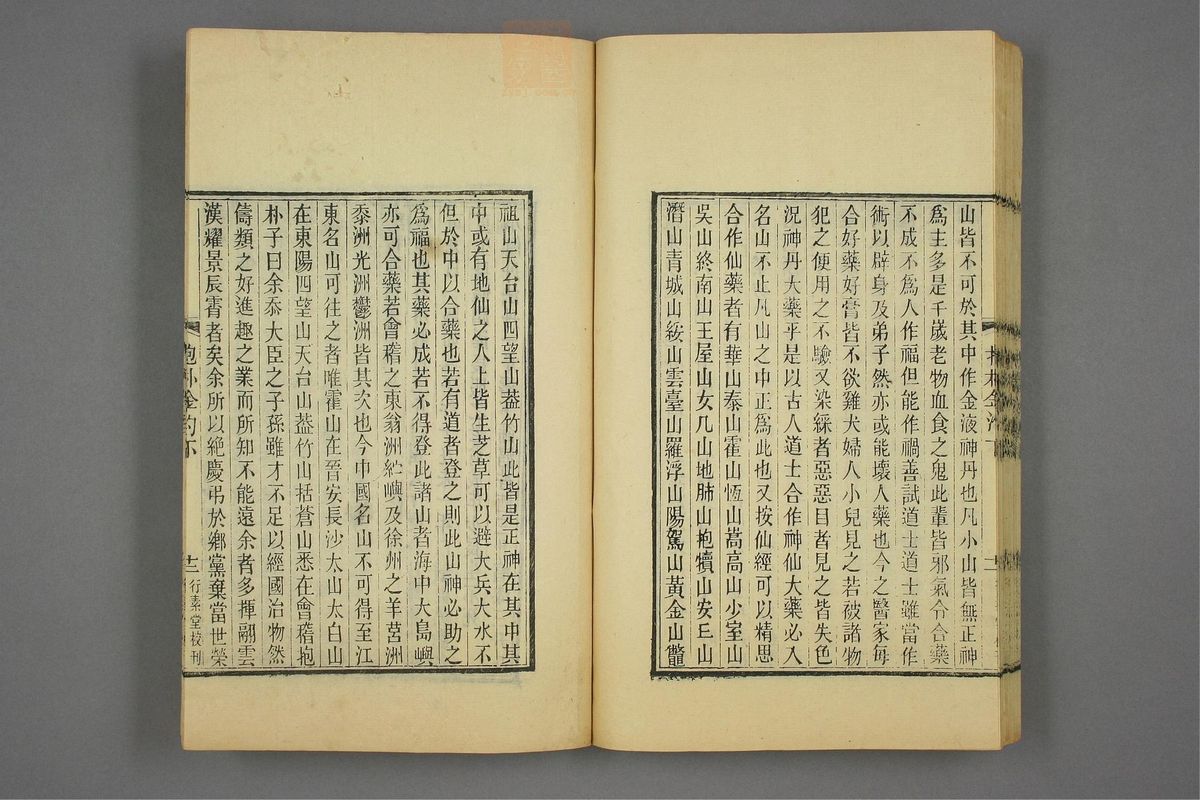 山皆不可於其中作金液神丹也凡小山皆無正神
爲主多是千歲老物血食之鬼此輩皆邪氣令合藥
不成不爲人作福但能作禍善試道士道士雖當作
術以辟身及弟子然亦或能壞人藥也今之醫家每
合好藥好膏皆不欲雞犬婦人小兒見之若破諸物
犯之便用之不驗又染綵者惡惡目者見之皆失色
況神丹大藥乎是以古人道士合作神仙大藥必入
名山不止凡山之中正爲此也又按仙經可以精思
合作仙藥者有華山泰山霍山恆山嵩高山少室山
吳山終南山王屋山女几山地肺山抱犢山安𠀋山
潛山青城山綏山雲臺山羅浮山陽駕山黃金山鼈
祖山天台山四望山葢竹山此皆是正神在其中其
中或有地仙之人上皆生芝草可以避大兵大水不
但於中以合藥也若有道者登之則此山神必助之
爲福也其藥必成若不得登此諸山者海中大島嶼
亦可合藥若會稽之東翁洲紵嶼及徐州之羊莒洲
黍洲光洲鬱洲皆其次也今中國名山不可得至江
東名山可往之者唯霍山在晉安長沙太山太白山
在東陽四望山天台山葢竹山括蒼山悉在會稽抱
朴子曰余忝大臣之子孫雖才不足以經國治物然
儔類之好進趣之業而所知不能遠余者多揮翮雲
漢耀景辰霄者矣余所以絶慶弔於鄉黨棄當世榮
行素堂校刊